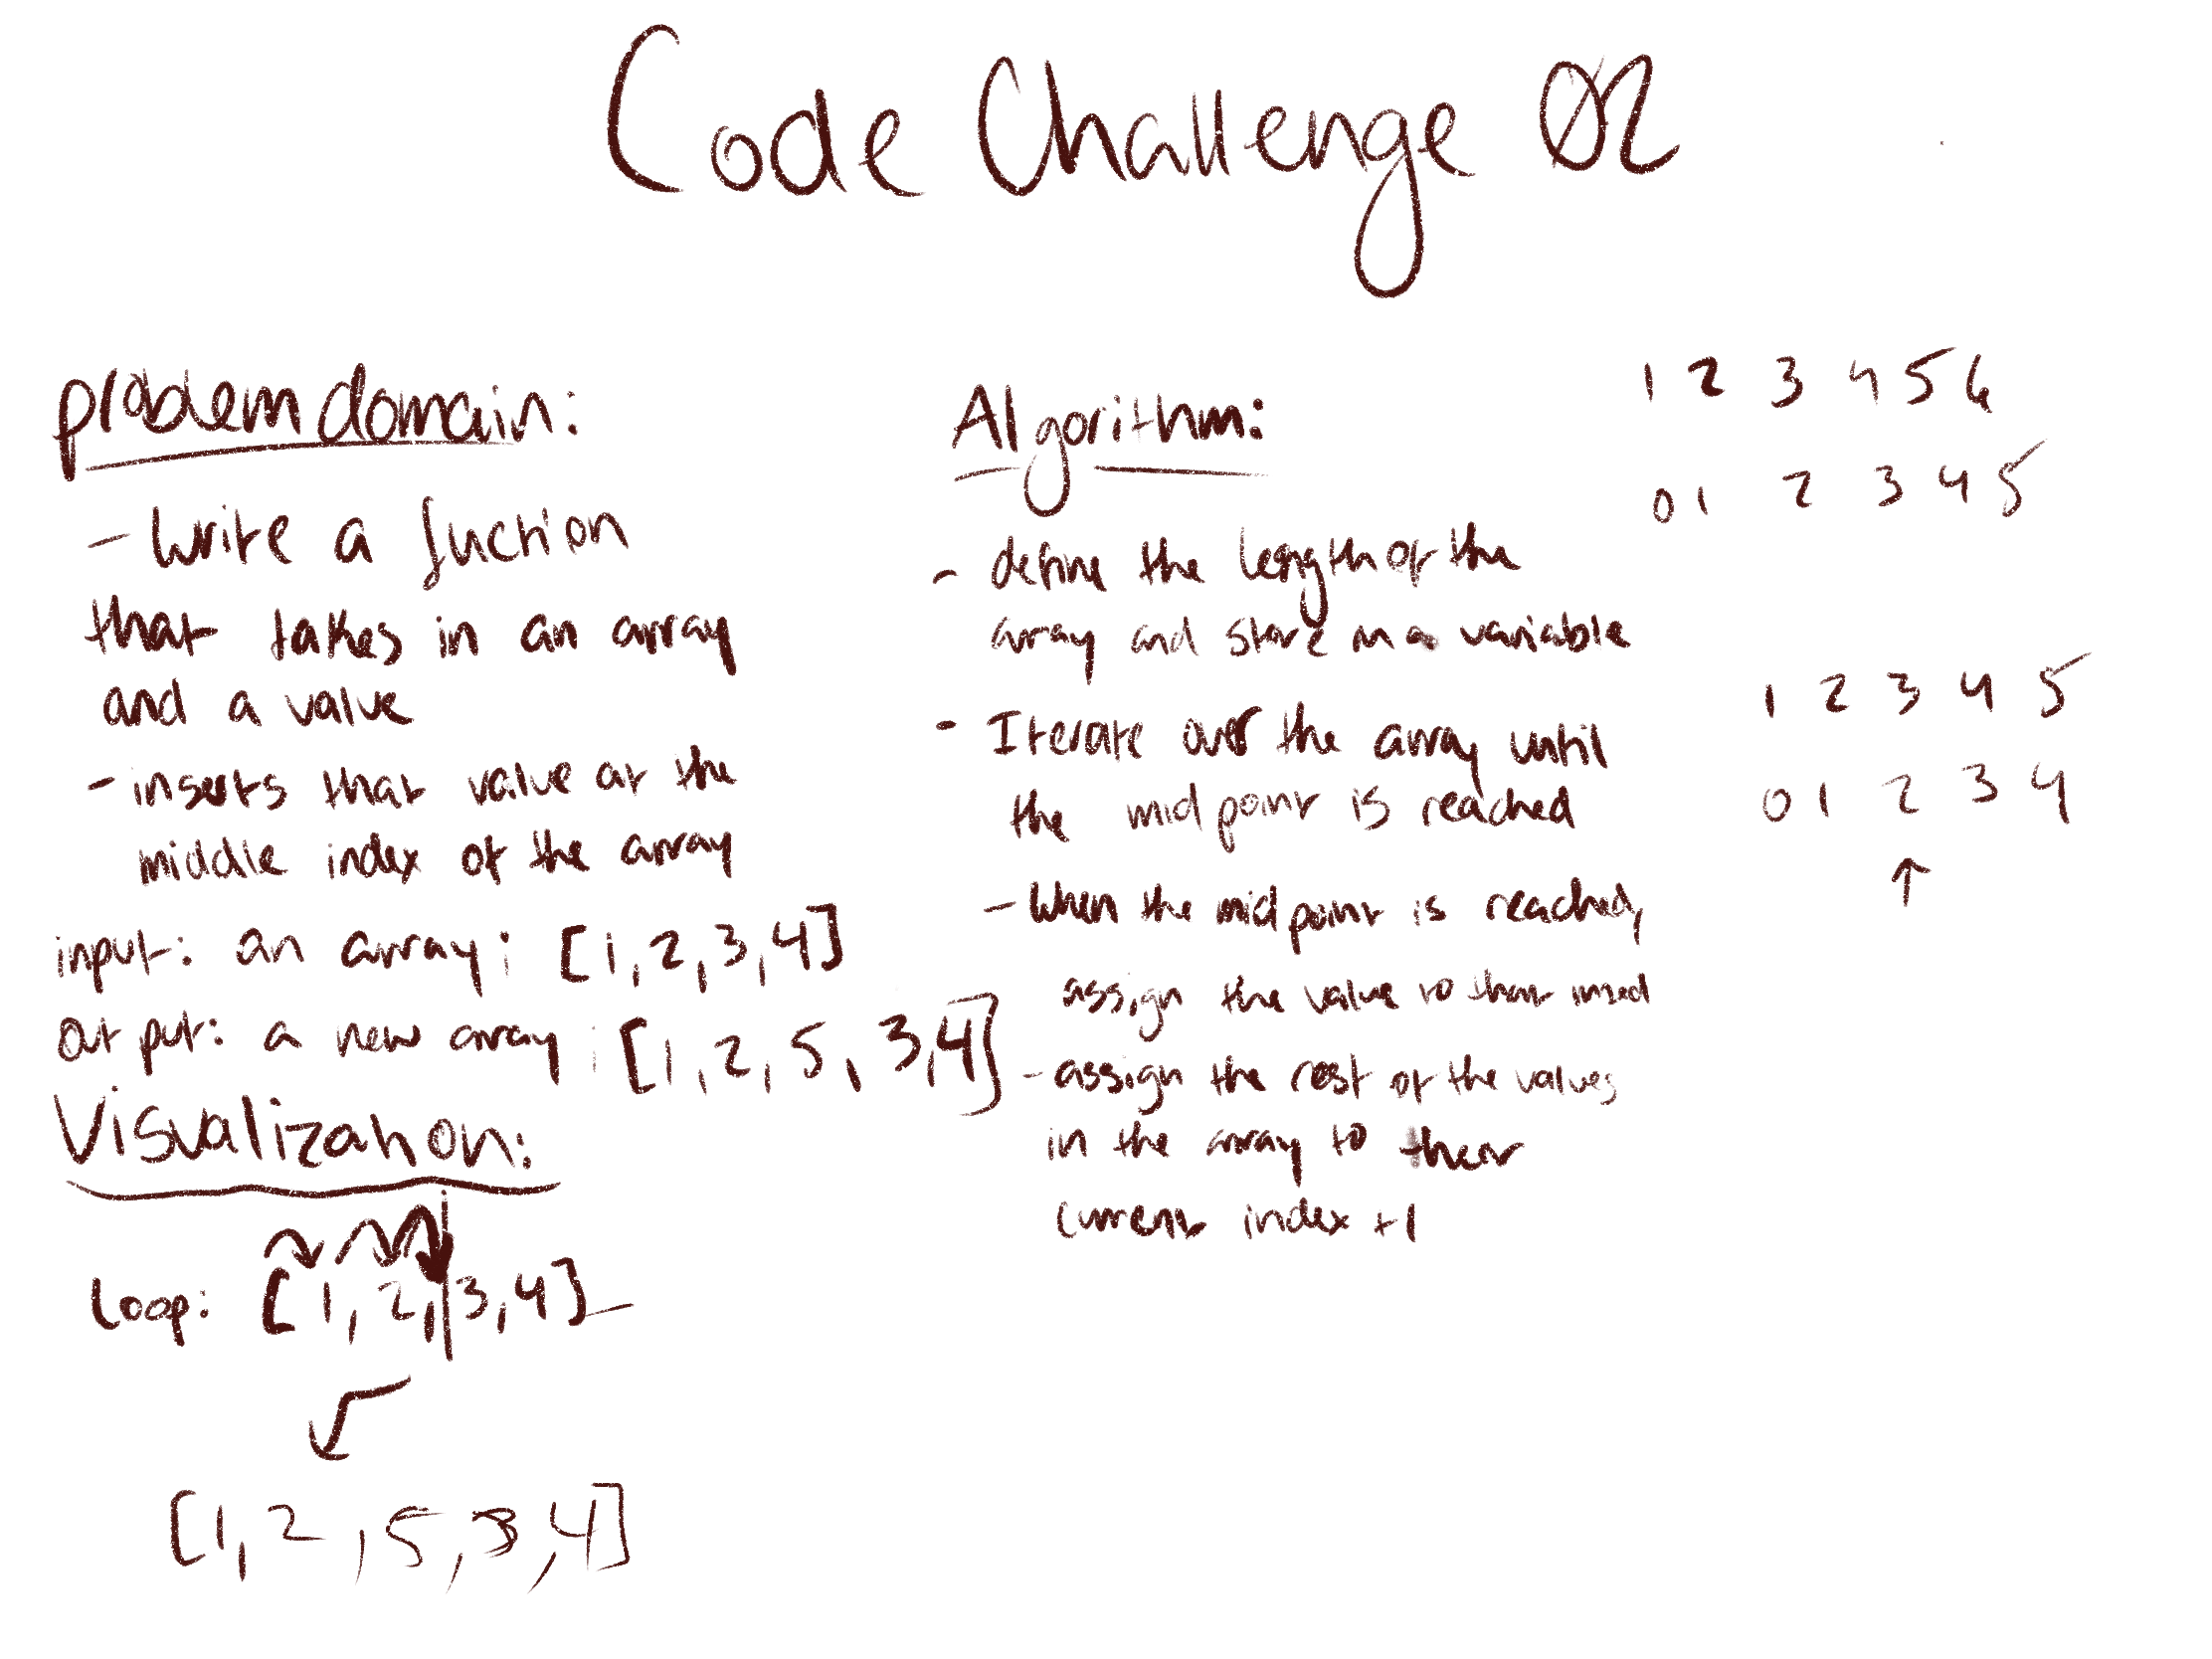 Code Challenge 02
problem domain:
- Write a fuction
that takes in an array
and a value
- inserts that value at the
middle index of the array
input: an array: [1, 2, 3, 4]
out put: a new array: [1, 2, 5, 3, 4]
Visualization:
loop: [1, 2, 3, 4]
[1, 2, 5, 3, 4]
Algorithm:
- define the length of the
array and store in a variable
- Iterate over the array until
the midpoint is reached
- When the midpoint is reached,
assign the value to that
- assign the rest of the values
in the array to their
current index +1
1 2 3 4 5 6
0 1 2 3 4 5
1 2 3 4 5
0 1 2 3 4